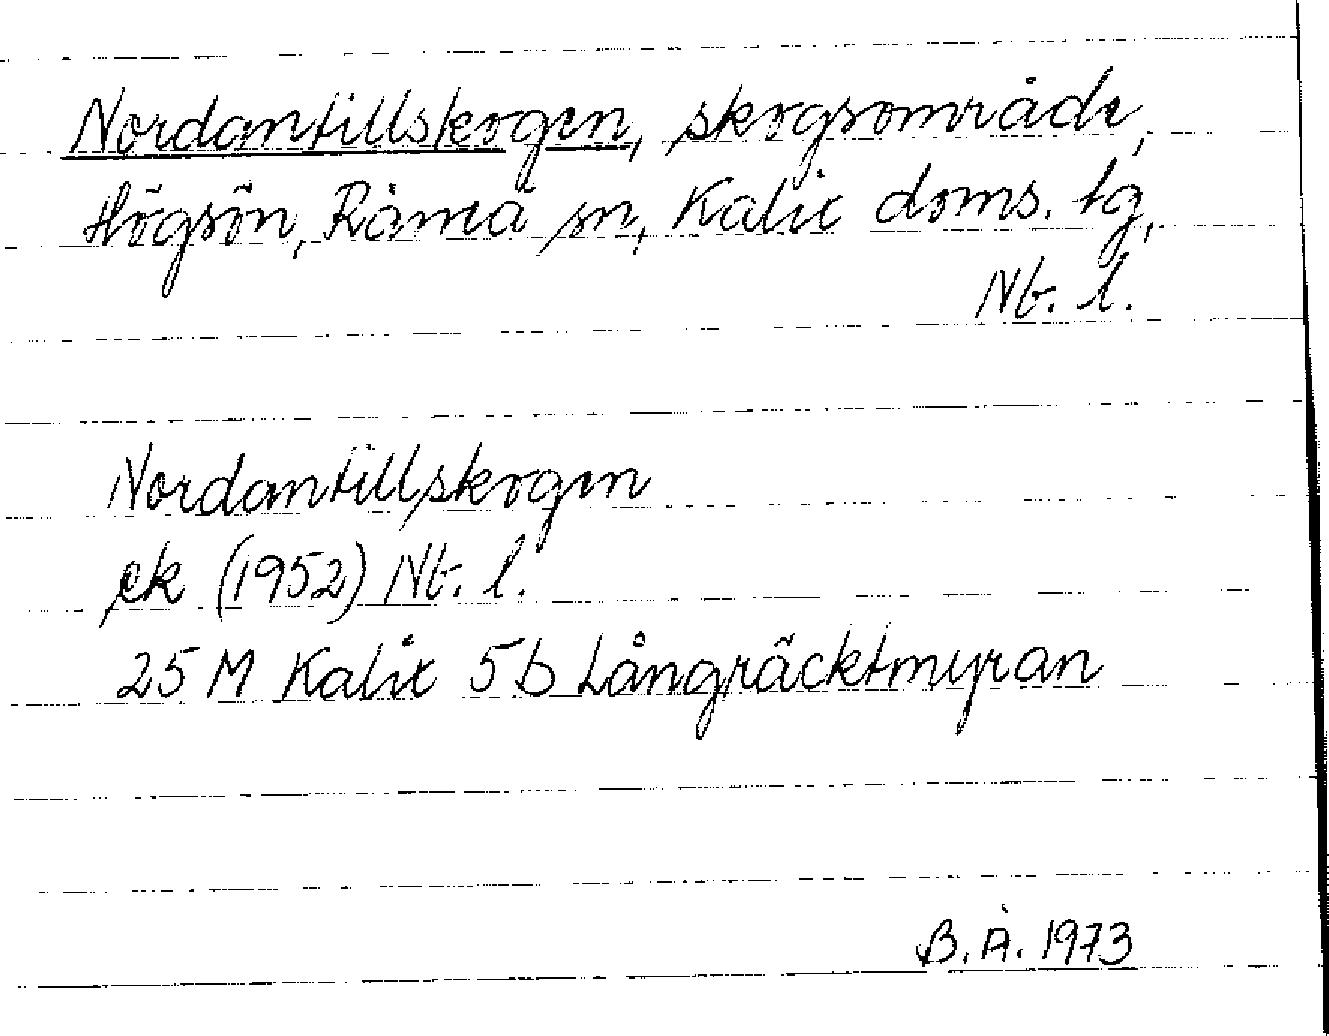 Nordantillskogen, skogsområde,
Högsön, Råneå sn, Kalix doms. tg,
Nb. l.
Nordantillskogen
ek (1952) Nb. l.
25 M Kalix 5b Långräcktmyran
B. Å. 1973